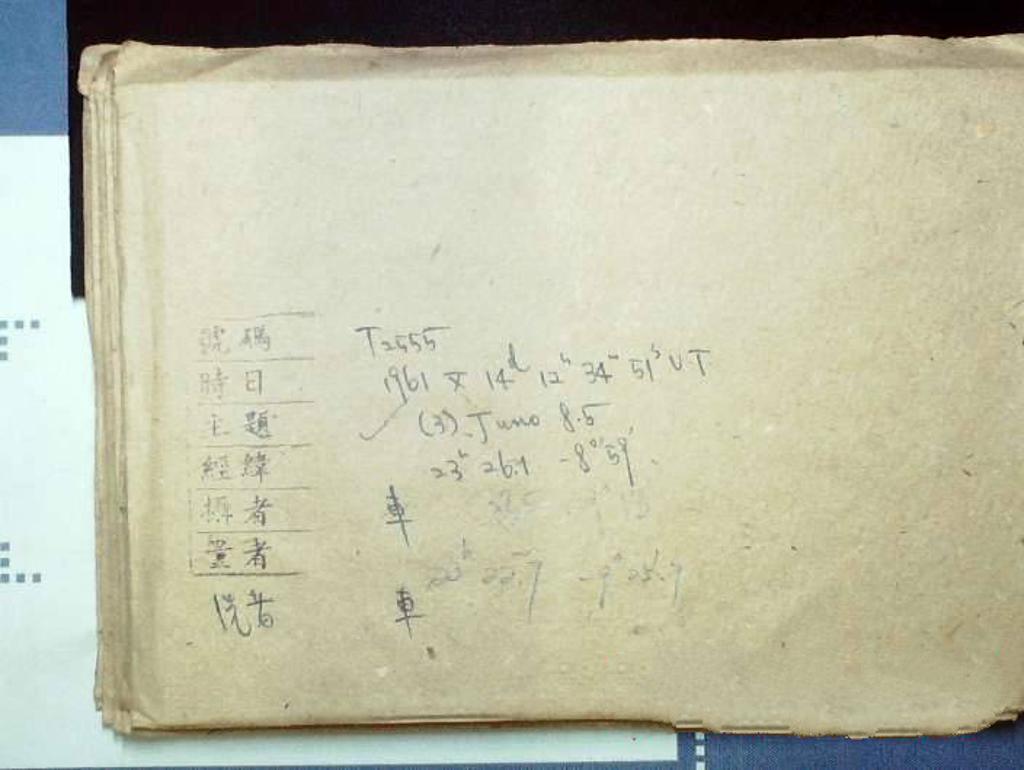 號碼 T2555
時日 1961 X 14d 12h 34m 51s UT
主題 (3) Juno 8.5
經緯 23h 26.1 -8° 59'
攝者 車
量者
23h 22.7 -9° 25.7
洗者 車